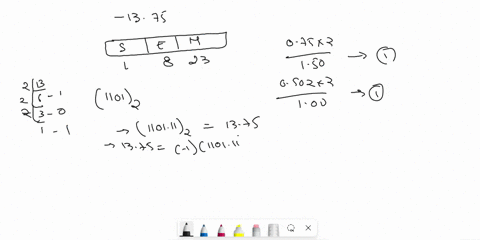 -13.75
S E M
1 8 23
2 13
2 6 - 1
2 3 - 0
1 - 1
(1101)2
→ (1101.11)2 = 13.75
→ 13.75 = (-1)(1101.11
0.75×2
1.50 → 1
0.502×2
1.00 → 1